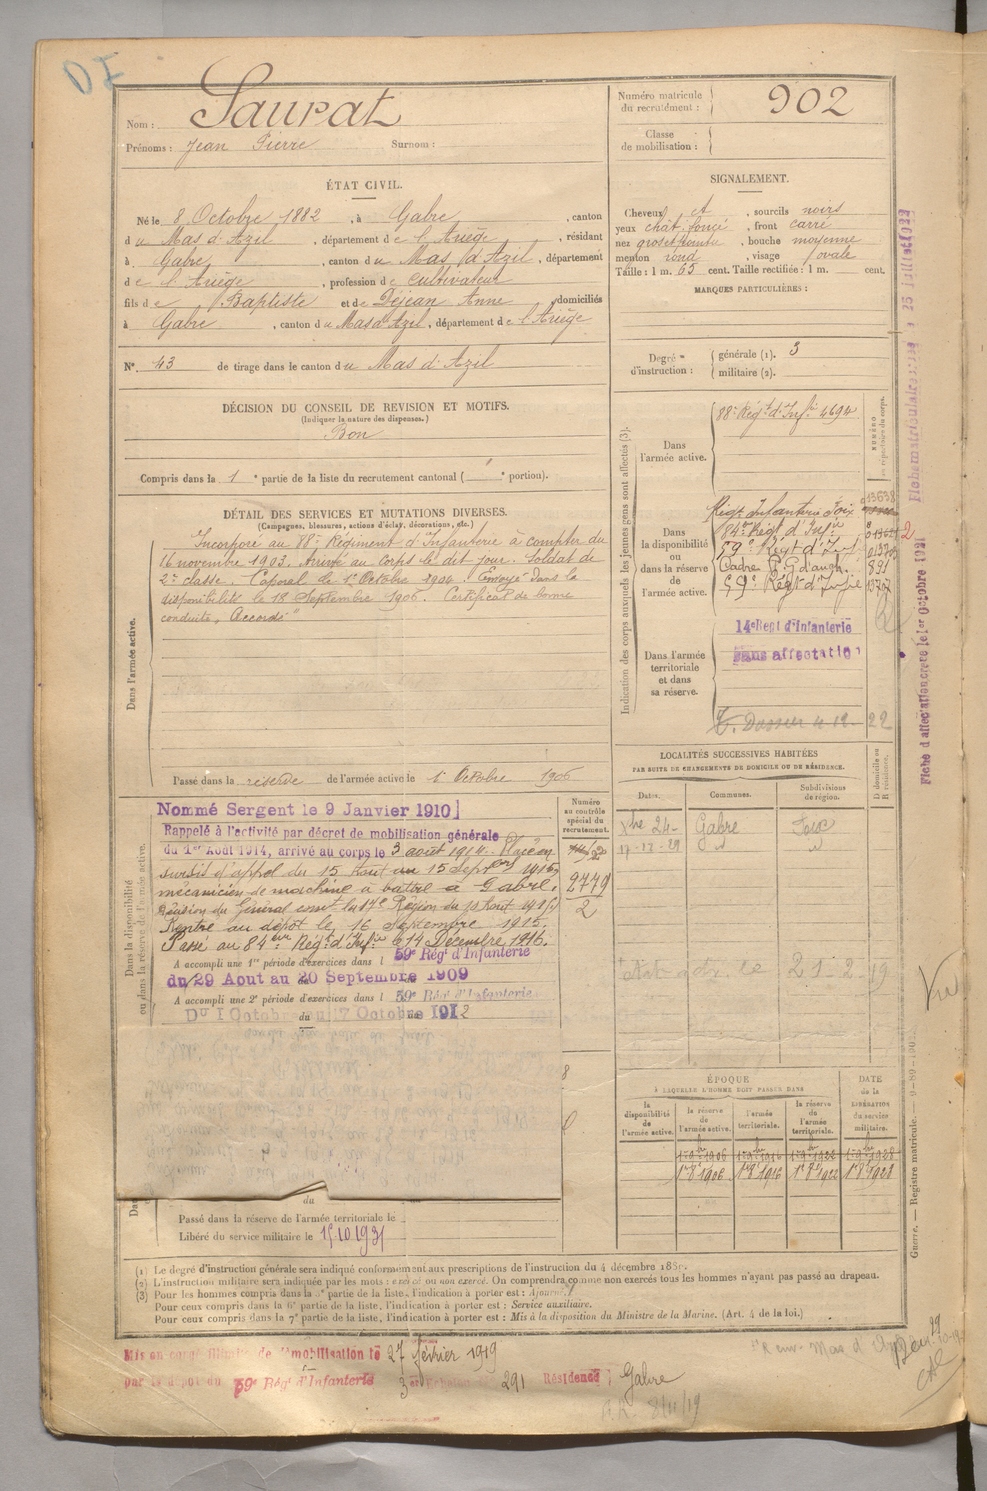 DE
Nom : Saurat
Prénoms : Jean Pierre Surnom :
ÉTAT CIVIL.
Né le 8 Octobre 1882, à Gabre, canton
du Mas d'Azil, département de l'Ariège, résidant
à Gabre, canton du Mas d'Azil, département
de l'Ariège, profession de cultivateur
fils de Baptiste et de Déjean Anne domiciliés
à Gabre, canton du Mas d'Azil, département de l'Ariège
N° 43 de tirage dans le canton du Mas d'Azil
DÉCISION DU CONSEIL DE REVISION ET MOTIFS.
(Indiquer la nature des dispenses.)
Bon
Compris dans la 1e partie de la liste du recrutement cantonal ( e portion).
DÉTAIL DES SERVICES ET MUTATIONS DIVERSES.
(Campagnes, blessures, actions d'éclat, décorations, etc.)
Dans l'armée active.
Incorporé au 88e Régiment d'Infanterie à compter du
16 novembre 1903. Arrivé au corps le dit jour. Soldat de
2e classe. Caporal le 1er Octobre 1904. Envoyé dans la
disponibilité le 18 Septembre 1906. Certificat de bonne
conduite "Accordé"
Passé dans la réserve de l'armée active le 1er Octobre 1906
Dans la disponibilité
ou dans la réserve de l'armée active.
Nommé Sergent le 9 Janvier 1910
Rappelé à l'activité par décret de mobilisation générale
du 1er Août 1914, arrivé au corps le 3 août 1914. Placé en
sursis d'appel du 15 Août au 15 Septbre 1915
mécanicien de machine à battre à Gabre.
Décision du Général comt la 17e Région du 10 Août 1915
Rentré au dépôt le 16 Septembre 1915.
Passé au 84ème Régt d'Infie le 14 Décembre 1916.
A accompli une 1re période d'exercices dans l 59e Régt d'Infanterie
du 29 Aout au 20 Septembre 1909
A accompli une 2e période d'exercices dans l 59e Régt d'Infanterie
Du 1 Octobre au 17 Octobre 1912
du
Passé dans la réserve de l'armée territoriale le
Libéré du service militaire le 15/10/1931
Numéro
au contrôle
spécial du
recrutement.
2779
2
Numéro matricule
du recrutement : 902
Classe
de mobilisation :
SIGNALEMENT.
Cheveux ct, sourcils noirs
yeux chat. foncé, front carré
nez, bouche moyenne
menton rond, visage ovale
Taille : 1 m. 65 cent. Taille rectifiée : 1 m. cent.
MARQUES PARTICULIÈRES :
Degré d'instruction :
générale (1). 3
militaire (2).
Indication des corps auxquels les jeunes gens sont affectés (3).
NUMÉRO
au répertoire du corps.
Dans
l'armée active.
88e Régt d'Infie 4694
Dans
la disponibilité
ou dans la réserve de
l'armée active.
Régt Infanterie Foix 13638
84e Régt d'Infie
59e Régt d'Inf
Cadre 891
59e Régt d'Infie
Dans l'armée
territoriale
et dans
sa réserve.
14e Regt d'Infanterie
Sans affectation
22
LOCALITÉS SUCCESSIVES HABITÉES
PAR SUITE DE CHANGEMENTS DE DOMICILE OU DE RÉSIDENCE.
Dates. Communes. Subdivisions de région. D domicile ou R résidence.
Xbre 24- Gabre Foix
17-12-29 d° d°
21-2-19
ÉPOQUE
À LAQUELLE L'HOMME DOIT PASSER DANS
DATE
de la
LIBÉRATION
du service
militaire.
la disponibilité de l'armée active. la réserve de l'armée active. l'armée territoriale. la réserve de l'armée territoriale.
1er 8bre 1906 1er 8bre 1916 1er 8bre 1922 1er 8bre 1928
(1) Le degré d'instruction générale sera indiqué conformément aux prescriptions de l'instruction du 4 décembre 1889.
(2) L'instruction militaire sera indiquée par les mots : exercé ou non exercé. On comprendra comme non exercés tous les hommes n'ayant pas passé au drapeau.
(3) Pour les hommes compris dans la 5e partie de la liste, l'indication à porter est : Ajourné.
Pour ceux compris dans la 6e partie de la liste, l'indication à porter est : Service auxiliaire.
Pour ceux compris dans la 7e partie de la liste, l'indication à porter est : Mis à la disposition du Ministre de la Marine. (Art. 4 de la loi.)
Mis en congé illimité de démobilisation le 27 février 1919
par le dépôt du 59e Régt d'Infanterie 3 er Echelon 291 Résidence Gabre
8/11/19
Fiche matriculaire 25 Juillet 1922
Fiche d'affectation créée le 1er Octobre 1921
Vu
Guerre. — Registre matricule.